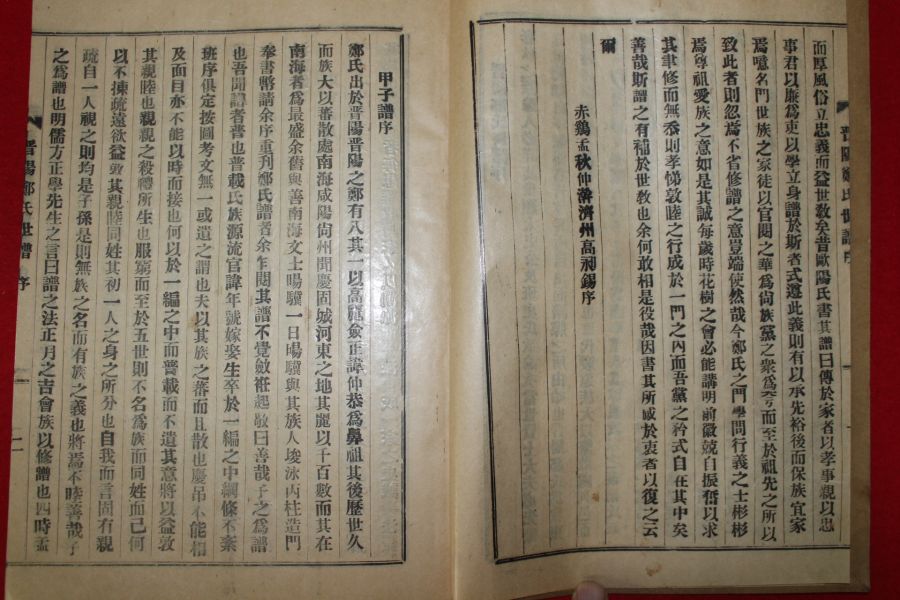 而厚風俗立忠義而益世敎矣昔歐陽氏書其譜曰傳於家者以孝事親以忠
事君以廉爲吏以學立身譜於斯者式遵此義則有以承先裕後而保族宜家
焉噫名門世族之家徒以官閥之華爲尙族黨之衆爲 而至於祖先之所以
致此者則忽焉不省修譜之意豈端使然哉今鄭氏之門學問行義之士彬彬
焉尊祖愛族之意如是其誠每歲時花樹之會必能講明前徽兢自振奮以求
其聿修而無忝則孝悌敦睦之行成於一門之內而吾黨之矜式自在其中矣
善哉斯譜之有補於世敎也余何敢相是役哉因書其所感於衷者以復之云
爾
赤鷄孟秋仲 濟州高 錫序
甲子譜序
鄭氏出於晋陽晋陽之鄭有八其一以高麗僉正諱仲恭爲鼻祖其後歷世久
而族大以蕃散處南海咸陽尙州聞慶固城河東之地其麗以千百數而其在
南海者爲最盛余舊與善南海文士暘驥一日暘驥與其族人埈泳丙柱造門
奉書幣請余序重刋鄭氏譜者余乍閱其譜不覺斂衽起敬曰善哉子之爲譜
也吾聞譜者普也普載氏族源流官諱年號嫁娶生卒於一編之中綱條不紊
班序俱定按圖考文無一或遺之謂也夫以其族之蕃而且散也慶吊不能相
及面目亦不能以時而接也何以於一編之中而普載而不遺其意將以益敦
其親睦也親親之殺禮所生也服窮而至於五世則不名爲族而同姓而已何
以不揀疏遠欲益敦其親睦同姓其初一人之身之所分也自我而言固有親
疏自一人視之則均是子孫是則無族之名而有族之義也將焉不睦善哉子
之爲譜也明儒方正學先生之言曰譜之法正月之吉會族以修譜也四時孟
晋陽鄭氏世譜 序
晋陽鄭氏世譜 序 二